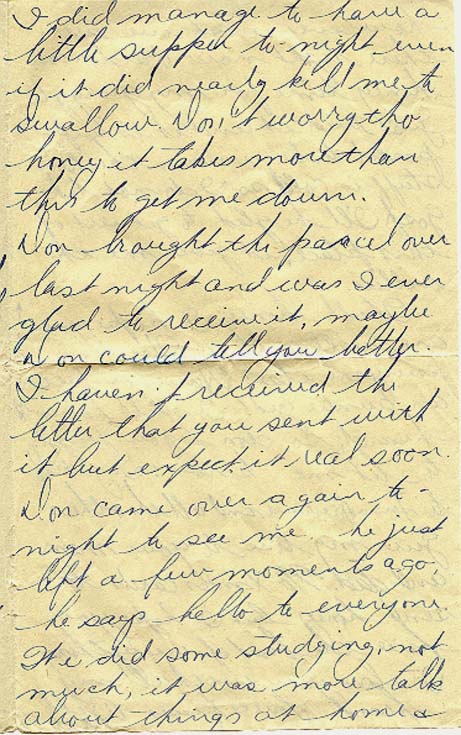 I did manage to have a
little supper to-night even
if it did nearly kill me to
swallow. Don't worry tho
honey it takes more than
this to get me down.
Don brought the parcel over
last night and was I ever
glad to receive it, maybe
Don could tell you better
I haven't received the
letter that you sent with
it but expect it real soon.
Don came over again to-
night to see me he just
left a few moments ago,
he says hello to everyone.
We did some studying, not
much, it was more talk
about things at home &